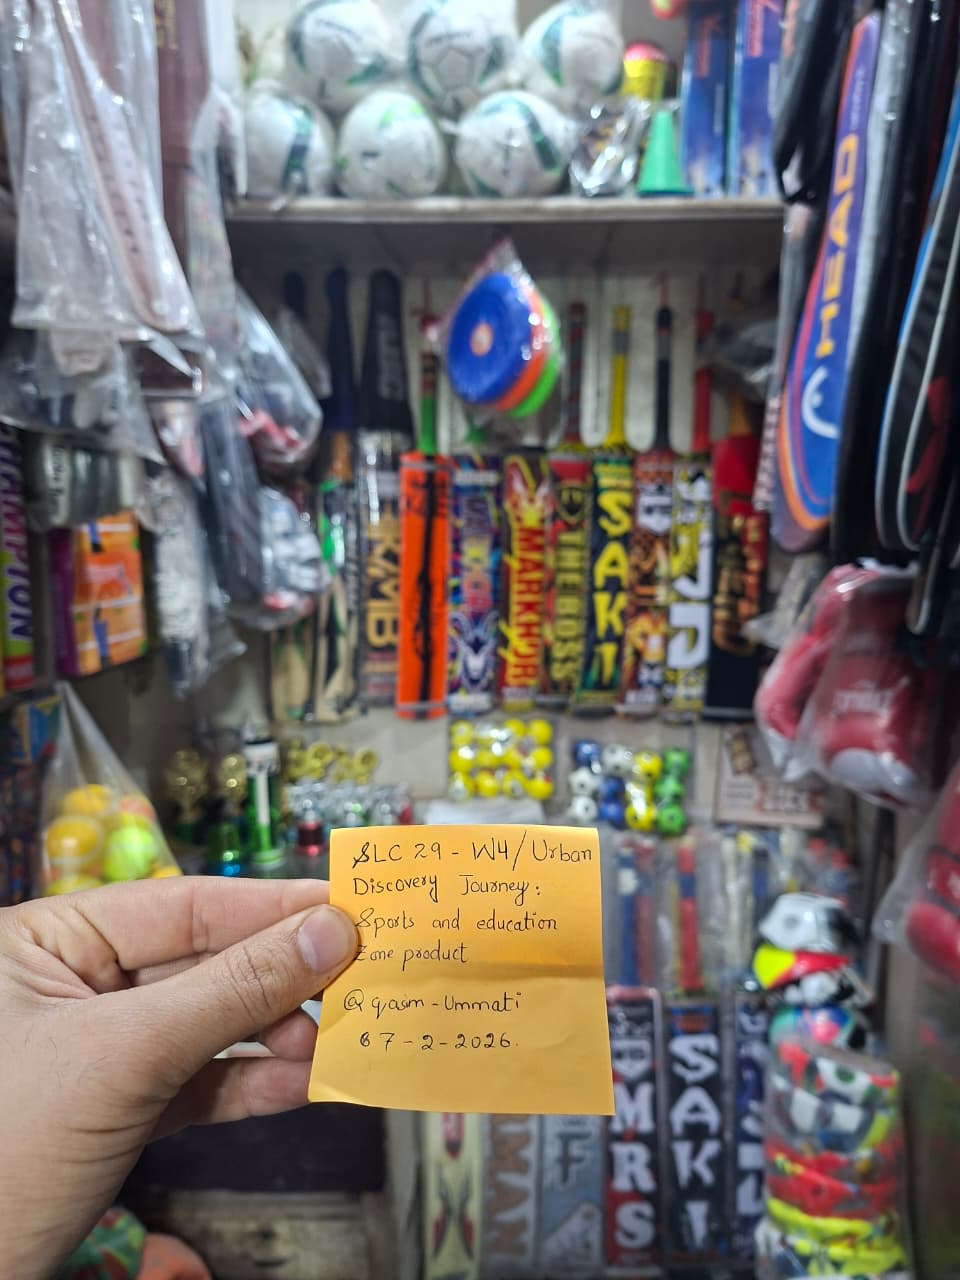 HEAD
CHAMPION
MB
MARKHOR
THE BOSS
SAKI
SLC 29 - W4/Urban
Discovery Journey:
Sports and education
Zone product
@qasim-Ummati
07-2-2026.
MRS
SAKI
MAN
F